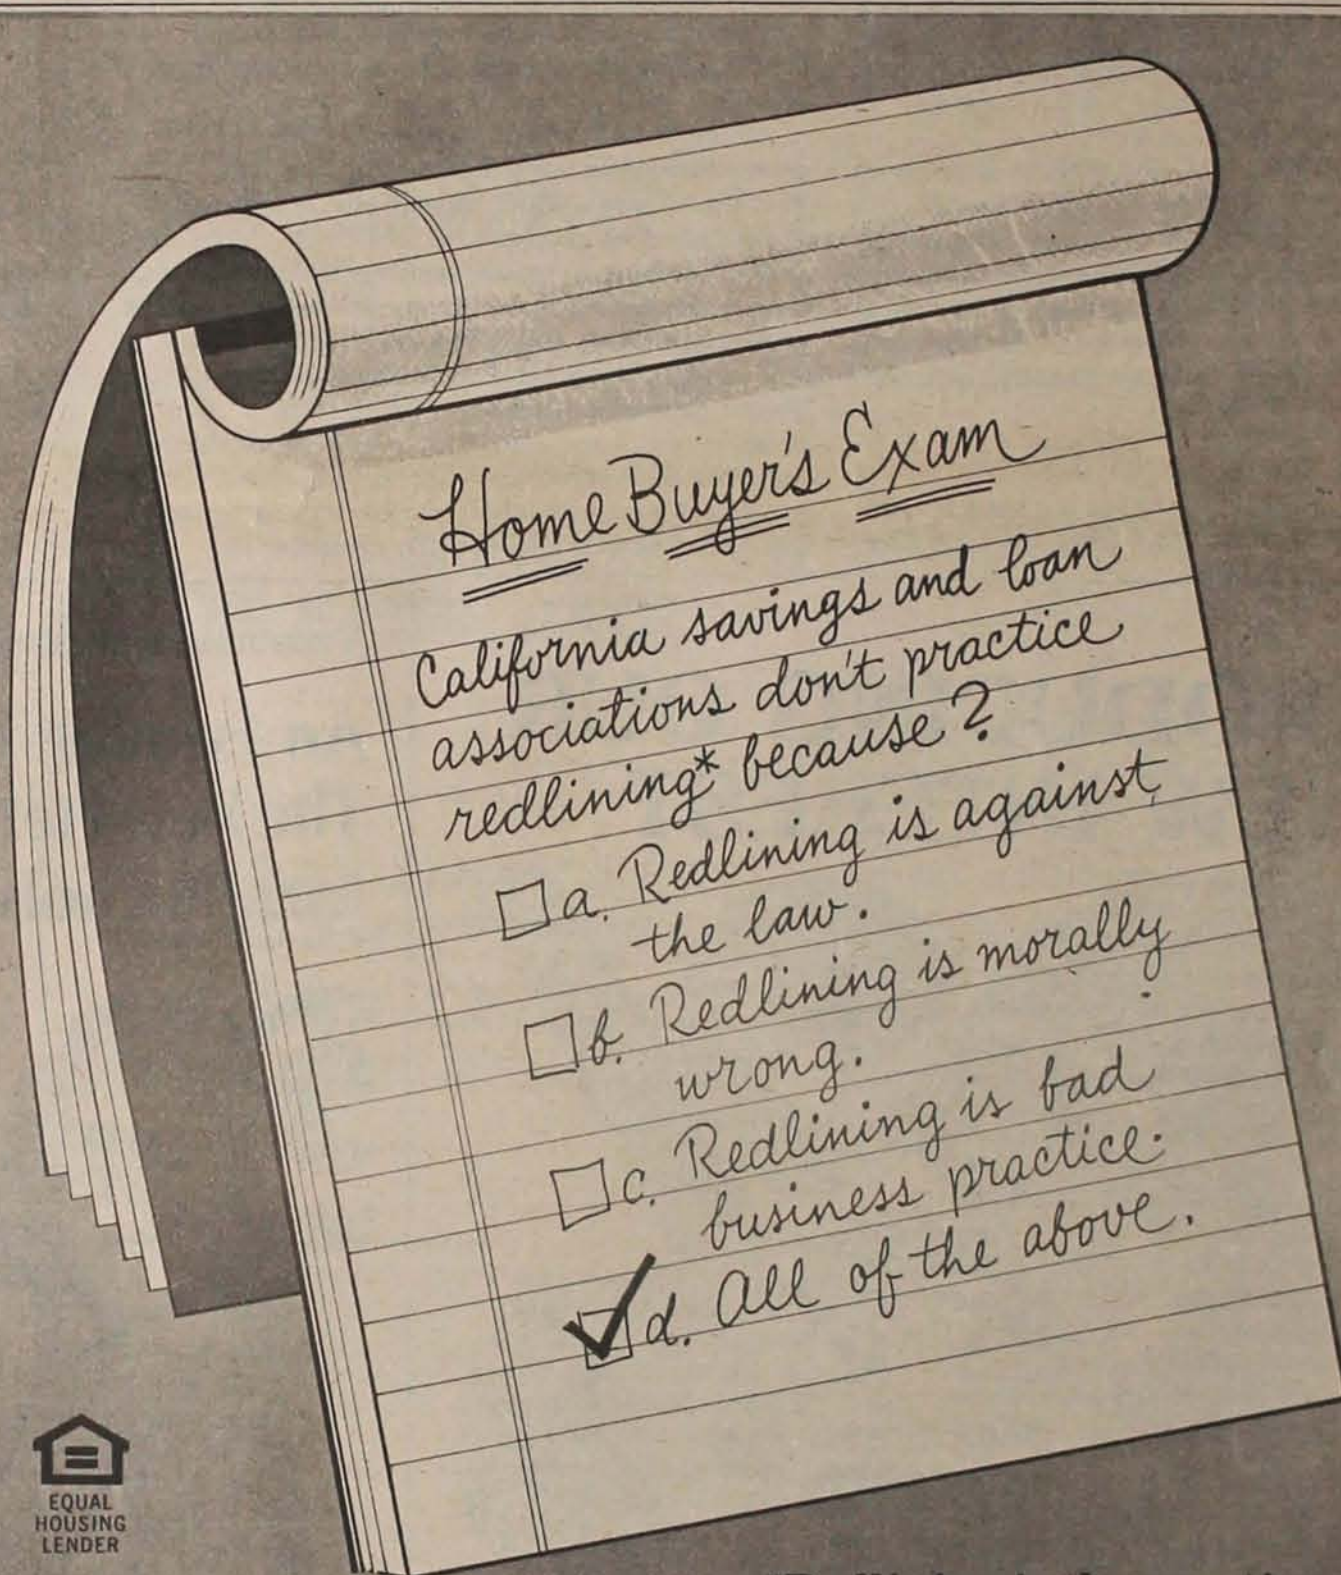 Home Buyer's Exam
California savings and loan
associations don't practice
redlining* because?
a. Redlining is against
the law.
b. Redlining is morally
wrong.
c. Redlining is bad
business practice.
d. All of the above.
EQUAL
HOUSING
LENDER